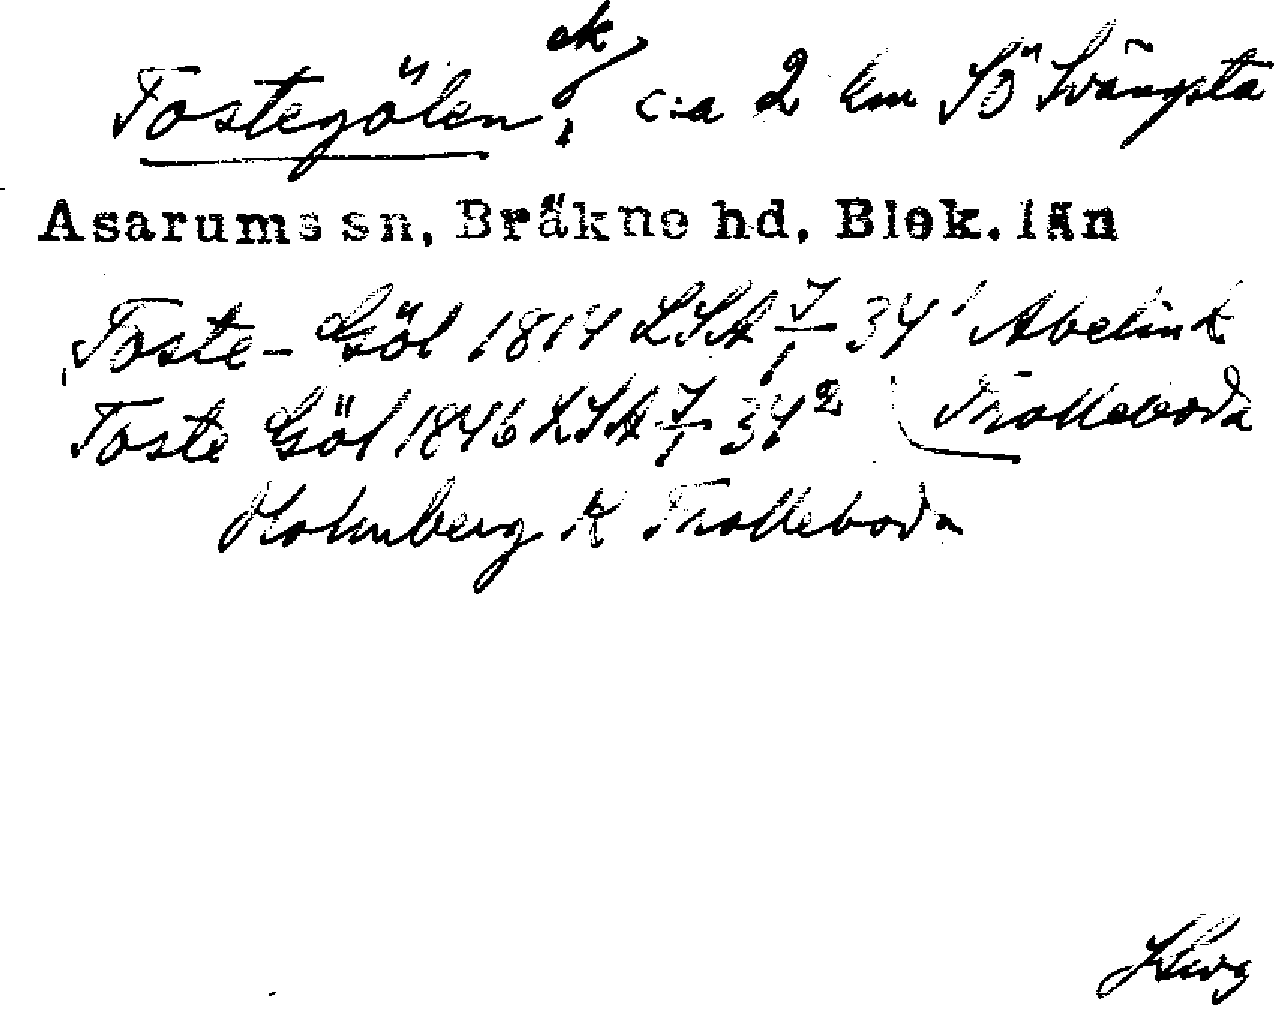 ek
Tostegölen, c:a 2 km SÖ Svängsta
Asarums sn, Bräkne hd, Blek. län
Toste-Göl 1814 LSA 34¹ Abelin K
Toste Göl 1846 LSA 34² Trolleboda
Holmberg K Trolleboda